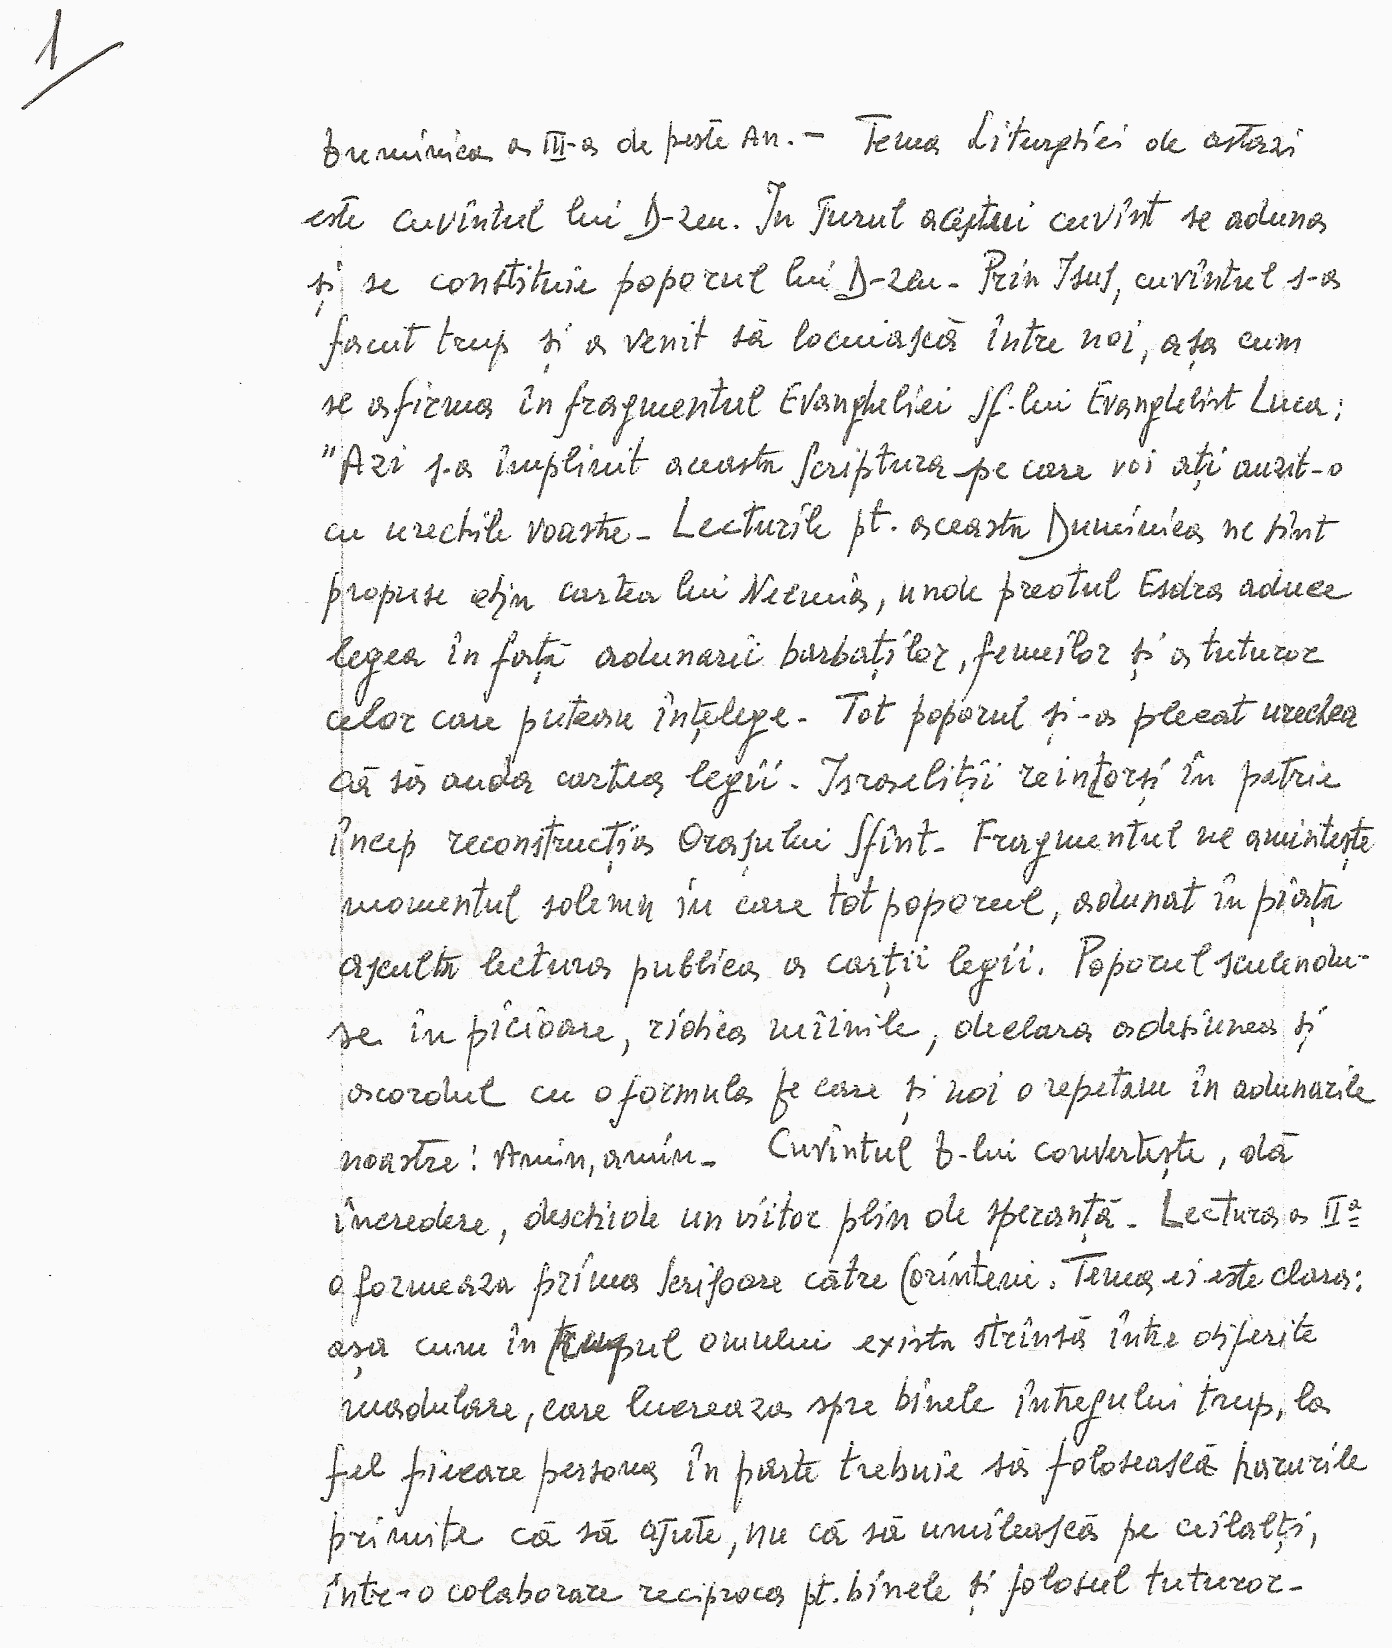 1
Duminica a III-a de peste An. - Tema Liturghiei de astazi
este cuvîntul lui D-zeu. In jurul acestui cuvînt se aduna
și se constituie poporul lui D-zeu. Prin Isus, cuvîntul s-a
facut trup și a venit să locuiască între noi, așa cum
se afirma în fragmentul Evangheliei Sf. lui Evanghelist Luca:
"Azi s-a împlinit aceasta Scriptura pe care voi ați auzit-o
cu urechile voastre - Lecturile pt. aceasta Duminica ne sînt
propuse din cartea lui Neemia, unde preotul Esdra aduce
legea în față adunarii barbaților, femeilor și a tuturor
celor care puteau înțelege. Tot poporul și-a plecat urechea
că să auda cartea legii. Israeliții reintorși în patrie
încep reconstrucția Orașului Sfînt. Fragmentul ne amintește
momentul solemn in care tot poporul, adunat în piața
asculta lectura publica a carții legii. Poporul sculendu-
se în picioare, ridica mîinile, declara adesiunea și
acordul cu o formula pe care și noi o repetam în adunarile
noastre: Amin, amin. Cuvîntul D-lui convertește, dă
încredere, deschide un viitor plin de speranță. Lectura a IIª
o formeaza prima Scrisoare către Corinteni. Tema ei este clara:
așa cum în trupul omului exista strînsă între diferite
madulare, care lucreaza spre binele întregului trup, la
fel fiecare persona în parte trebuie să folosească harurile
primite că să ajute, nu că să umilească pe ceilalți,
într-o colaborare reciproca pt. binele și folosul tuturor.